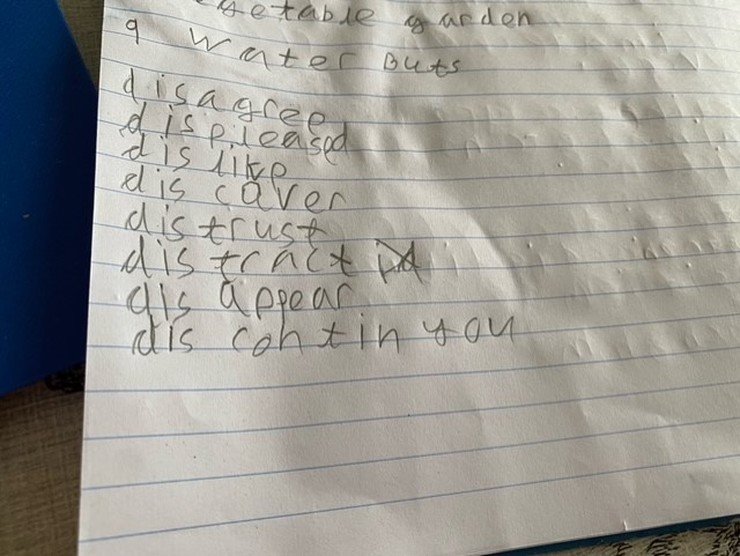 getable garden
9 water buts
disagree
displeased
dislike
dis caver
distrust
distract
dis appear
dis contin you